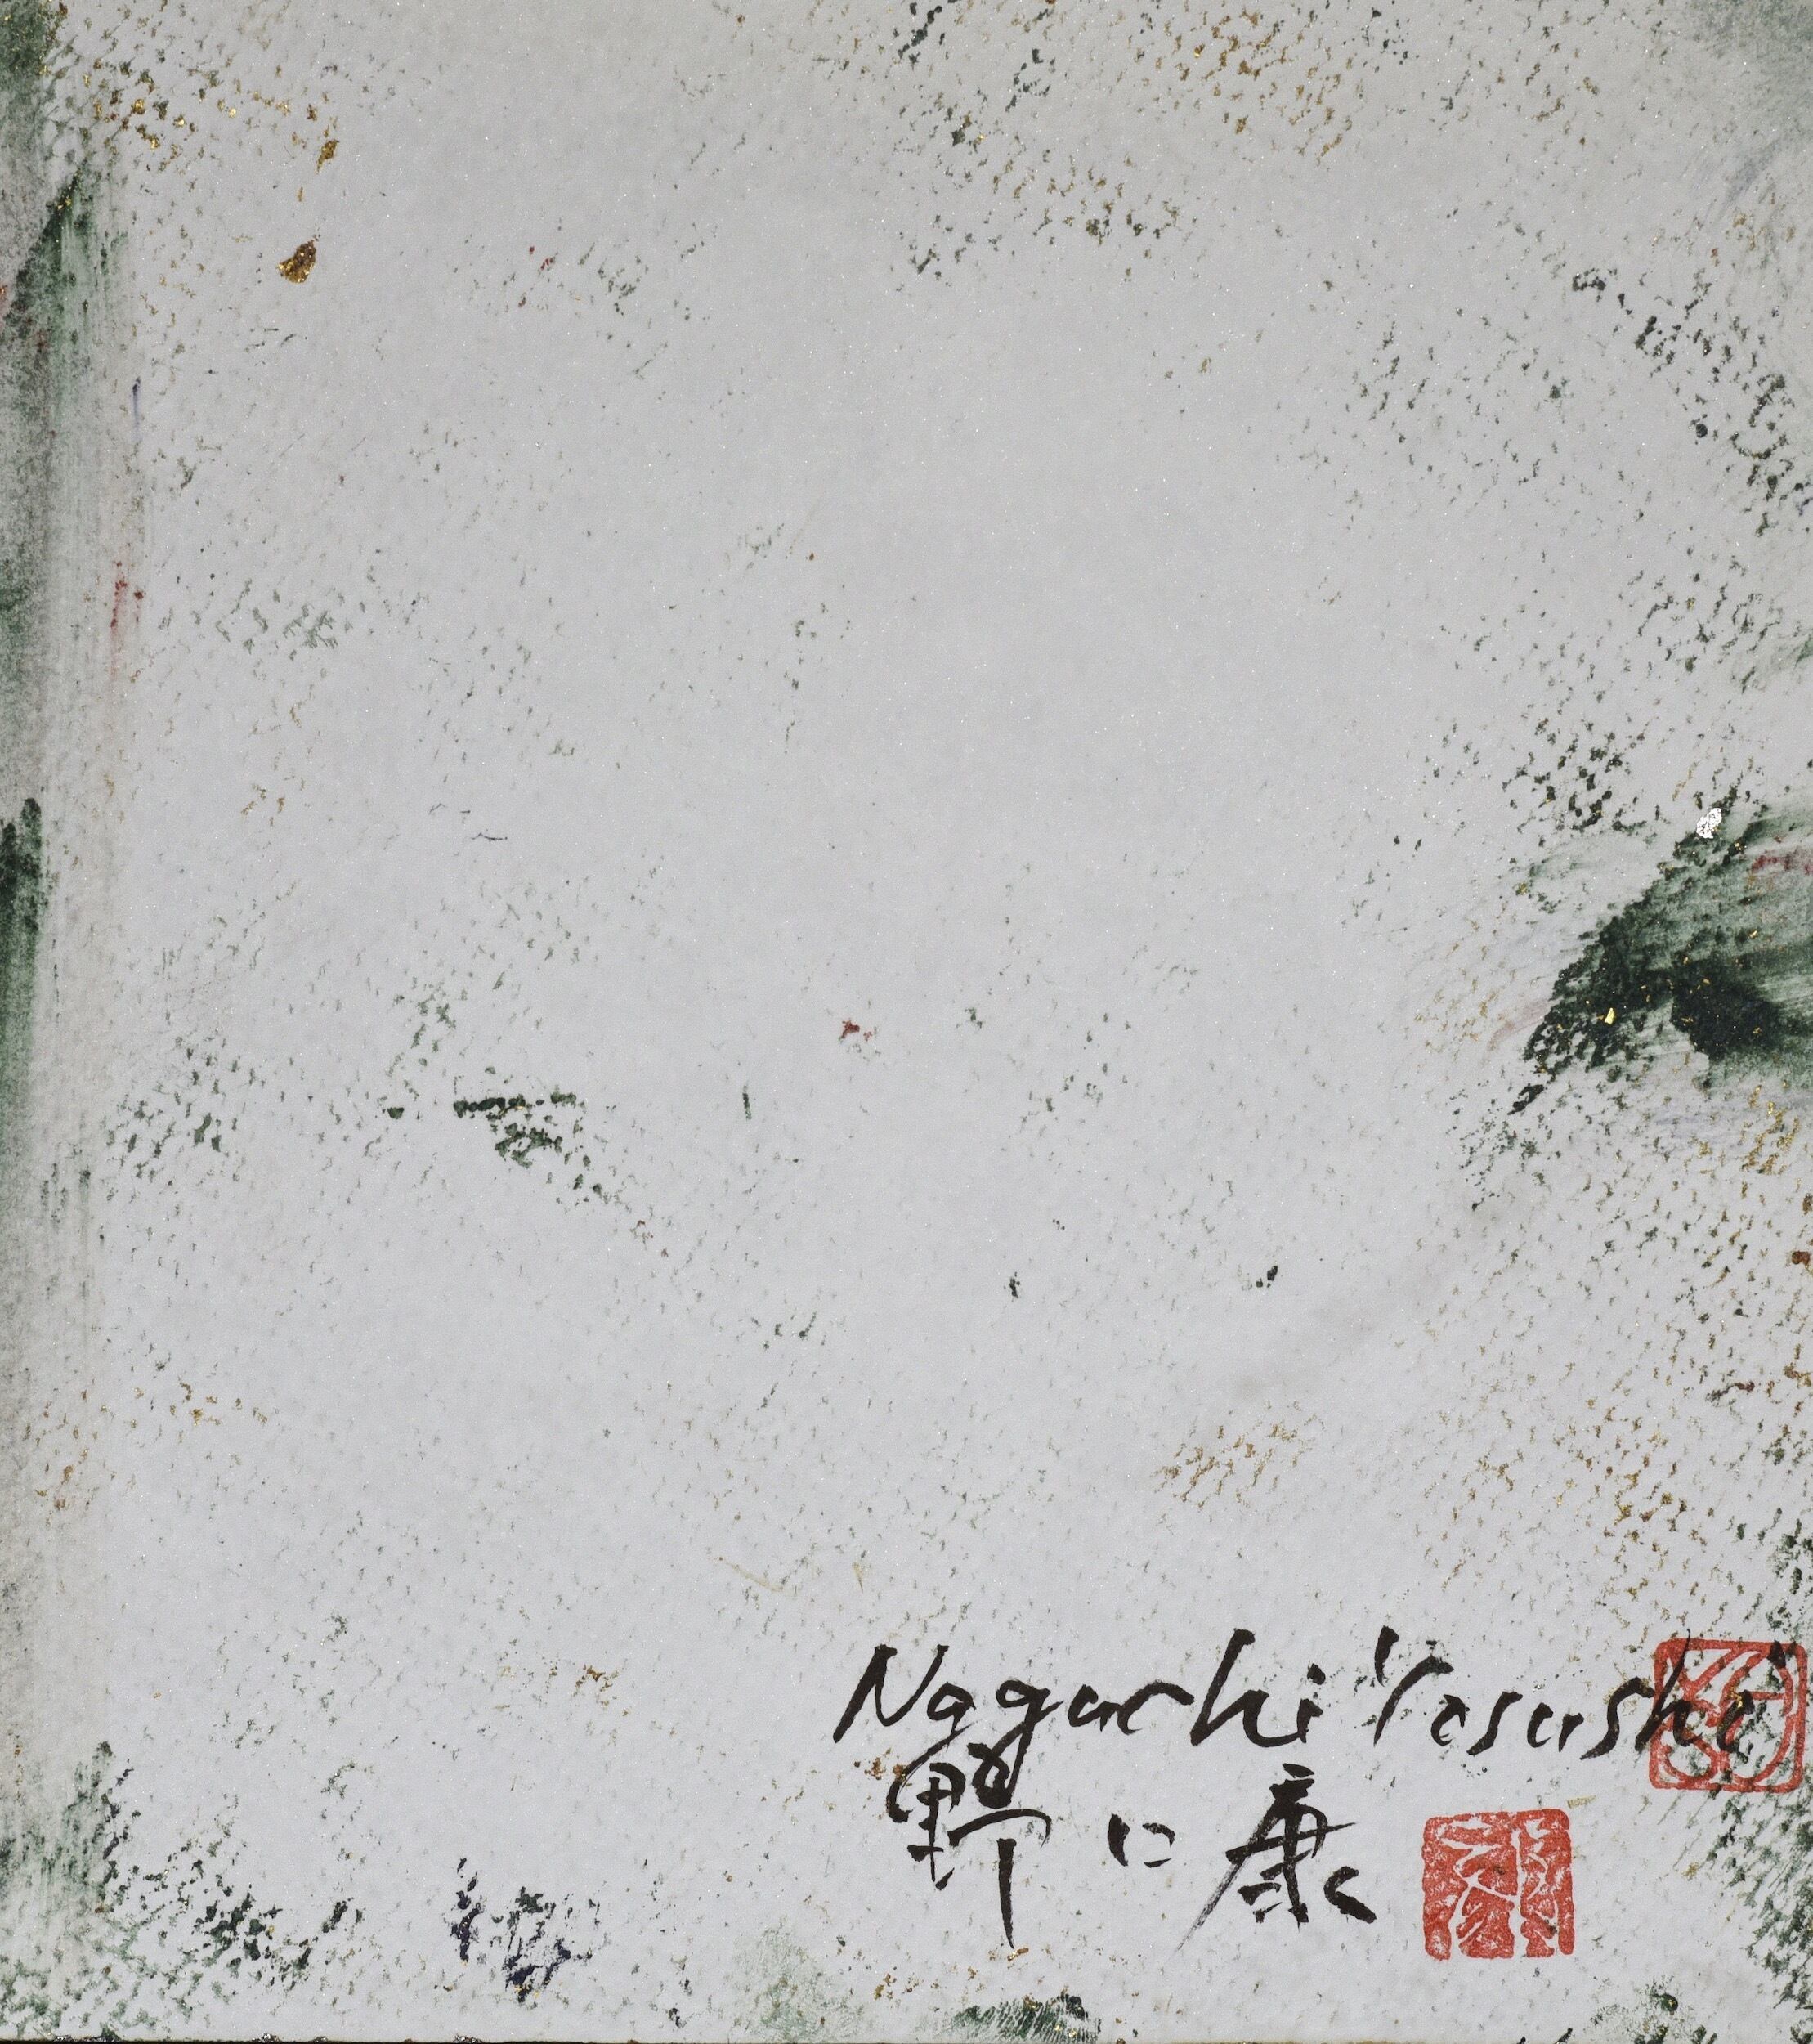 Noguchi Yasushi
野に康